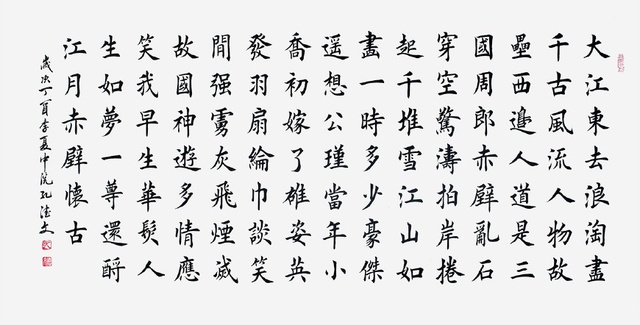 大江東去浪淘盡
千古風流人物故
壘西邊人道是三
國周郎赤壁亂石
穿空驚濤拍岸捲
起千堆雪江山如
畫一時多少豪傑
遥想公瑾當年小
喬初嫁了雄姿英
發羽扇綸巾談笑
間强虜灰飛煙滅
故國神遊多情應
笑我早生華髮人
生如夢一尊還酹
江月赤壁懷古
歲次丁酉季夏中浣孔德文